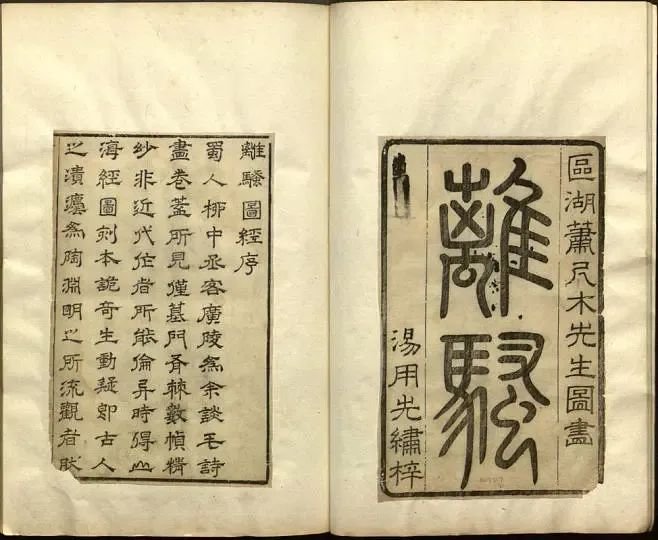 區湖蕭尺木先生圖畫
離騷
湯用先繡梓
離騷圖經序
蜀人柳中丞客廣陵為余談毛詩
畫卷蓋所見僅墓門斧棘數幀精
妙非近代作者所能倫異時得山
海經圖刻本詭奇生動疑即古人
之灋為陶淵明之所流觀者